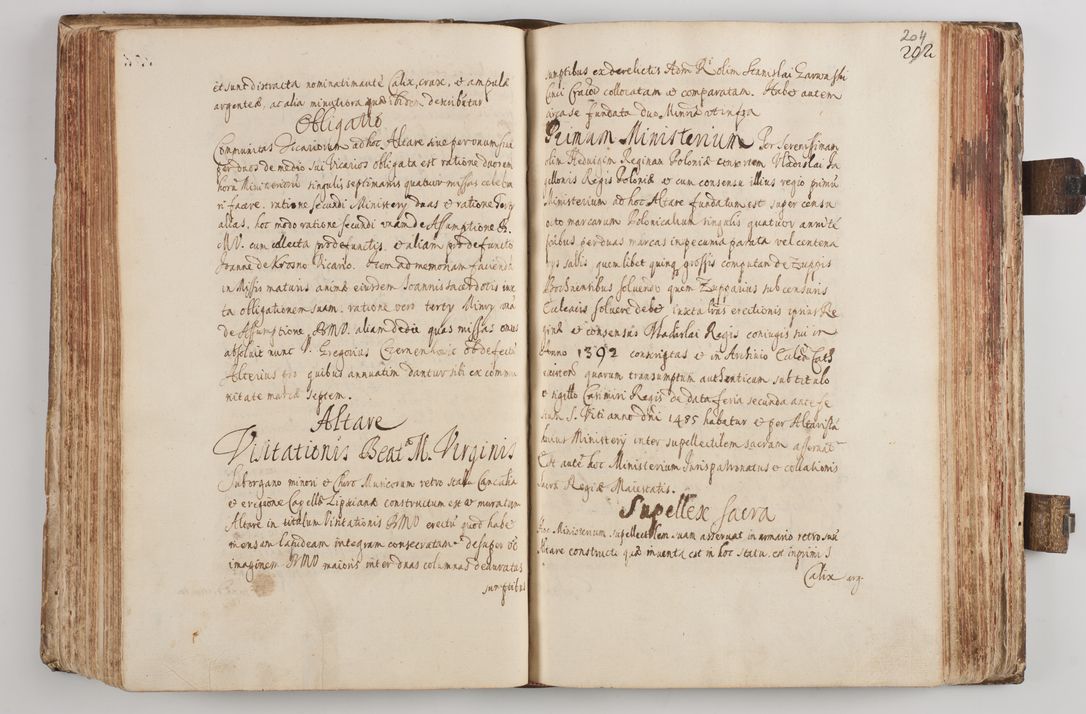 et sunt distracta nominatim autē Calix, cruxe, et ampulæ
argenteæ, ac alia minutiora quæ ibidem describūtur
Obligatio
Communitas Vicariorum ad hoc Altare sive per onum sive
per duos de medio sui Vicarios obligata est ratione duorum
horū Ministeriorū singulis septimanis quatuor missas celebra
ri facere. ratione secundi Ministerÿ duas et ratione tertÿ
alias, hoc modo ratione secundi unam de Assumptione B.
M.V. cum collecta pro defunctis, et aliam pro defuncto
Joanne de Krosno Vicario. Item ad memoriam faciendā
in Missis maturis animæ eiusdem Joannis sacerdotis iux
ta obligationem suam. ratione vero tertÿ Minrÿ unā
de Assumptione BMV. aliam de die quas missas onus
absolvit nunc P. Gregorius Czernenkovic ob defectū
Alterius pro quibus annuatim dantur sibi ex commu
nitate marcæ septem.
Altare
Visitationis Beatᵉ M. Virginis
Sub organo minori et Choro Musicorum retro stalla Cancellā
et e regione Capellæ Lipscianæ constructum est et muratum
Altare in titulum Visitationis BMV erectū quod habe
mensam lapideam integram consecratam desuper vᵒ
imaginem BMV maioris inter duas columnas deauratas
sumptibus
204
202
sumptibus ex derelictis Adm Rᵈi olim Stanislai Zarvonski
collocatam et comparatam. Habet autem
arca se fundata duo Minria ut infra
Primum Ministerium Per Serenissimam
olim Heduigem Reginam Poloniæ consortem Vladislai Ja
gellonis Regis Poloniæ et cum consensu illius regio primū
Ministerium ad hoc Altare fundatum est super censu
octo marcarum Polonicalium singulis quatuor anni tē
poribus per duas marcas in pecunia parata vel centena
rys sallis, quem libet quinq grossis computan de Zuppis
Bochnensibus solvendo quem Zupparius sub censuris
Ecclecijs solvere debet iuxta lr̄as erectionis ipsius Re
ginæ et consensus Vladislai Regis coniugis sui in
Anno 1392 conscriptas et in Archivio Eccleæ Cathˡ
existen quarum transumptum authenticum sub titulo
et sigillo Casimiri Regis de data feria secunda ante fe
stum S. Viti anno dn̄i 1485 habetur et per Altaristā
huius Ministerÿ inter supellectilem sacram asservat
Est autē hoc Ministerium Juris patronatus et collationis
Sacræ Regiæ Maiestatis.
Supellex Sacra
Hoc Ministerium supellectilem suam asservat in armario retro suū
Altare constructo quæ inventa est in hoc statu, est inprimis
Calix arg.